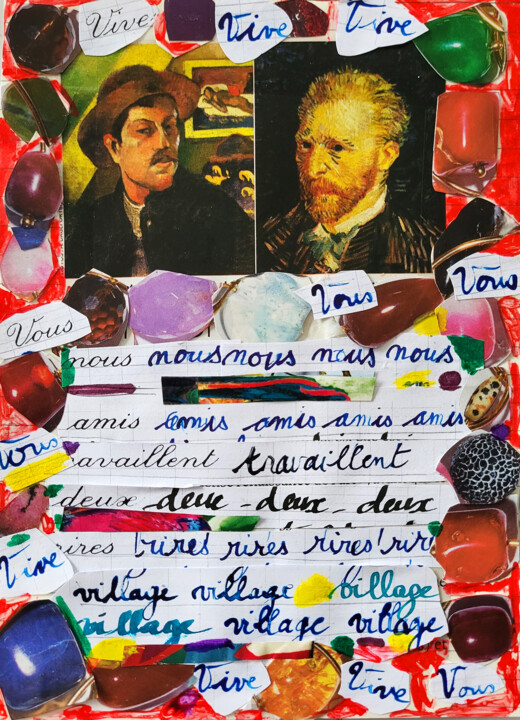 Vive Vive Vive
Vous Vous
Vous
nous nous nous nous nous
amis amis amis amis amis
Vous
travaillent
deux deux - deux - deux
rires rires rires rires
Vive
village village village
village village village
Vive Vive Vous